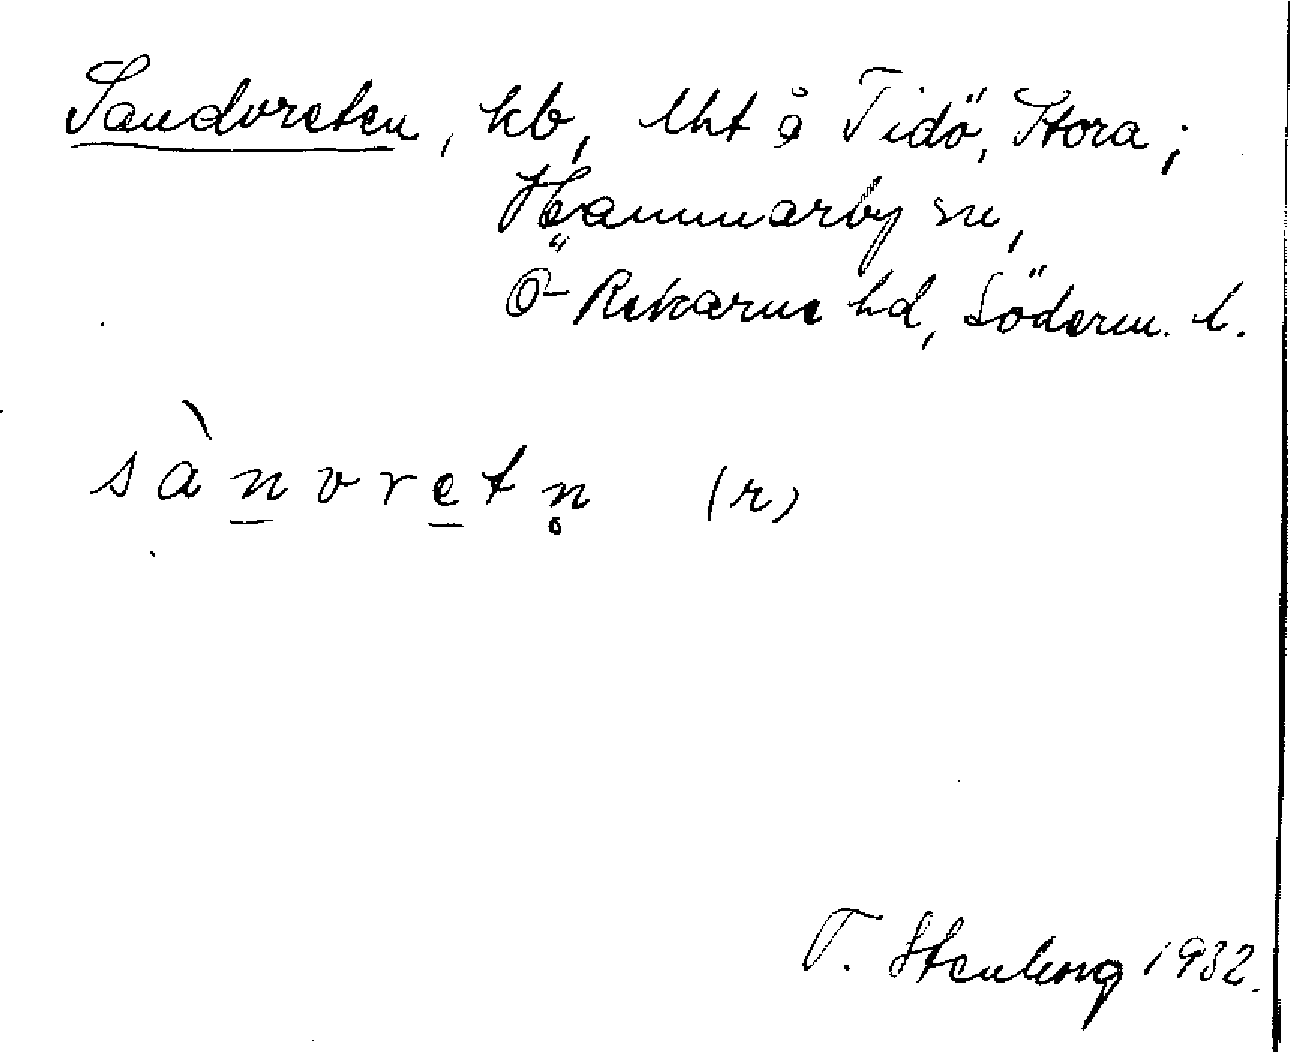 Sandvreten, kb, lht å Tidö, Stora;
Hammarby sn,
Ö Rekarne hd, Söderm. l.
sànvretn̥ (r)
T. Stenberg 1932.